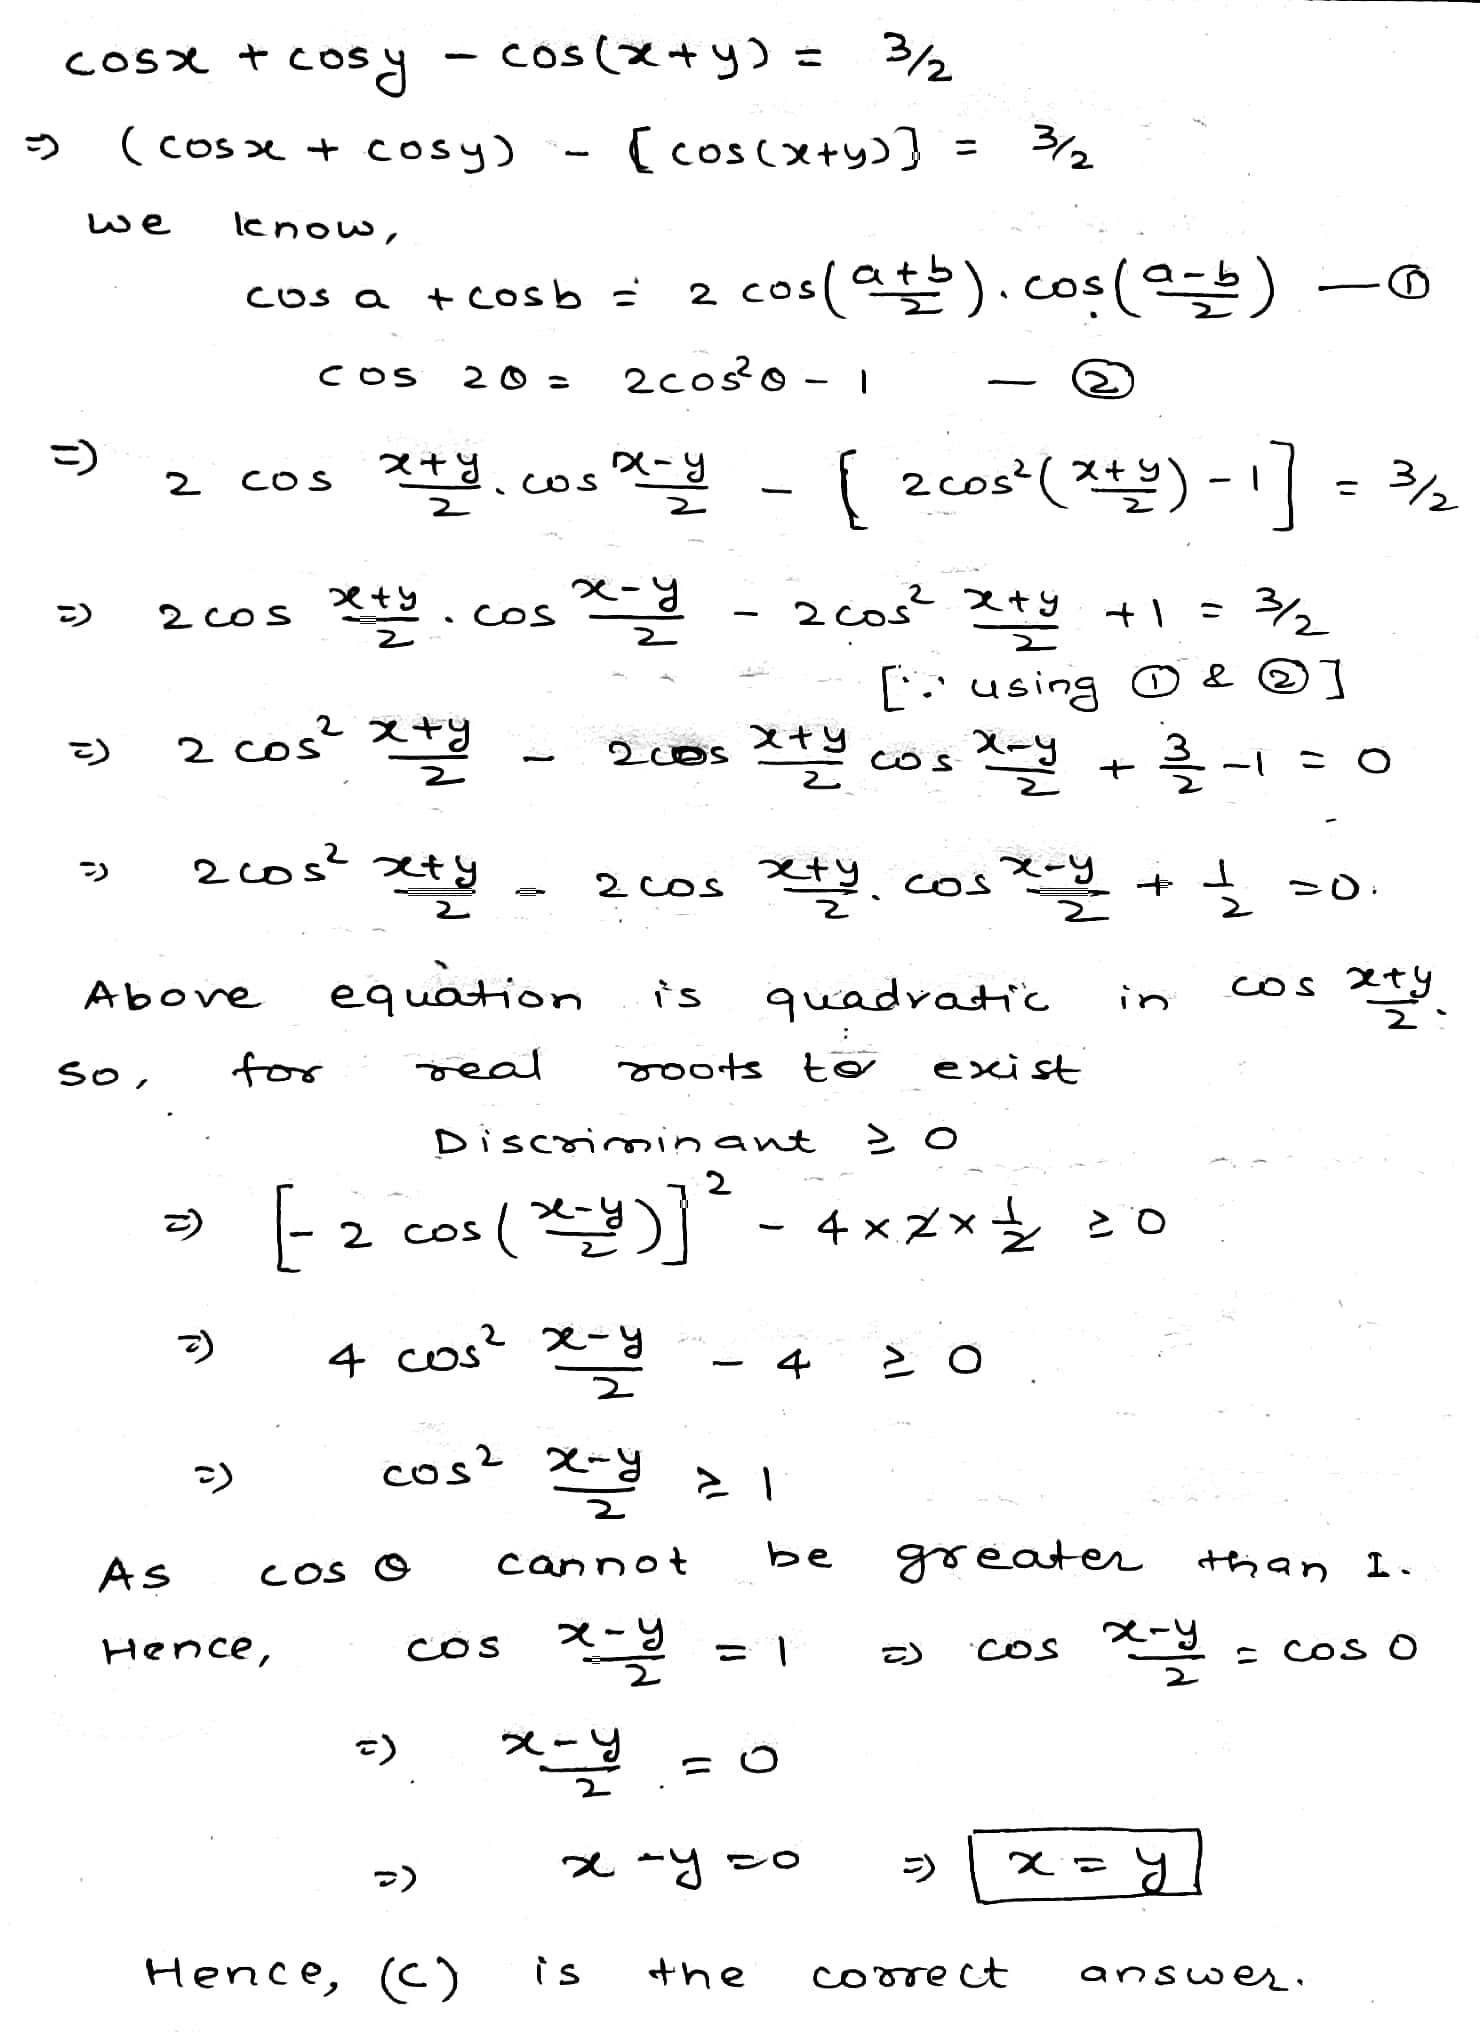 cosx + cosy - cos(x+y) = 3/2
=> (cosx + cosy) - [cos(x+y)] = 3/2
we know,
cos a + cosb = 2 cos((a+b)/2).cos((a-b)/2) — ①
cos 2θ = 2cos²θ - 1 — ②
=> 2 cos (x+y)/2 . cos (x-y)/2 - [2cos²((x+y)/2) - 1] = 3/2
=> 2cos (x+y)/2 . cos (x-y)/2 - 2cos² (x+y)/2 + 1 = 3/2
[∵ using ① & ②]
=> 2 cos² (x+y)/2 - 2cos (x+y)/2 cos (x-y)/2 + 3/2 - 1 = 0
=> 2cos² (x+y)/2 - 2cos (x+y)/2 . cos (x-y)/2 + 1/2 = 0.
Above equation is quadratic in cos (x+y)/2.
so, for real roots to exist
Discriminant ≥ 0
=> [-2 cos((x-y)/2)]² - 4×2×1/2 ≥ 0
=> 4 cos² (x-y)/2 - 4 ≥ 0
=> cos² (x-y)/2 ≥ 1
As cos θ cannot be greater than 1.
Hence, cos (x-y)/2 = 1 => cos (x-y)/2 = cos 0
=> (x-y)/2 = 0
=> x-y=0 => x = y
Hence, (C) is the correct answer.